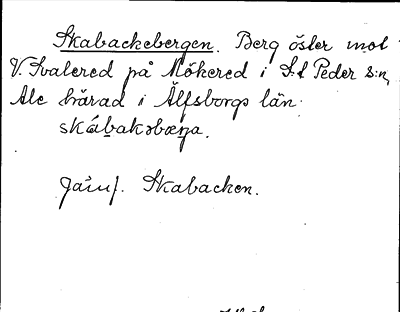 Skabackebergen. Berg öster mot
V. Svalered på Mökered i S:t Peder s:n,
Ale härad i Älfsborgs län.
skábaksbæɲa.
Jämf. Skabacken.